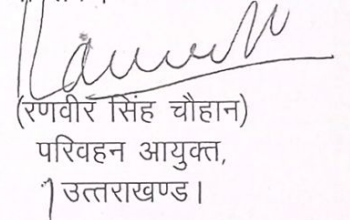 (रणवीर सिंह चौहान)
परिवहन आयुक्त,
उत्तराखण्ड।